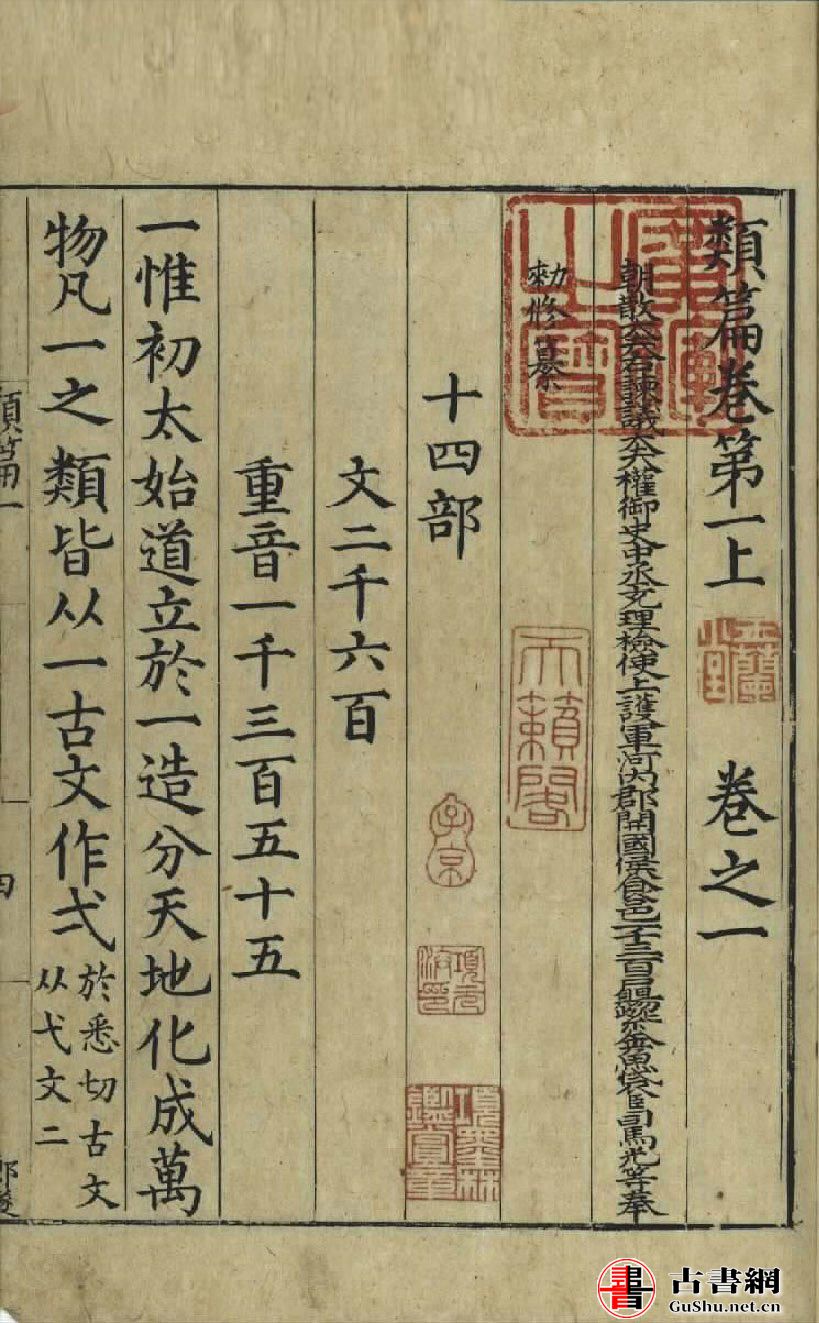 類篇卷第一上 卷之一
朝散大夫右諫議大夫權御史中丞充理檢使上護軍河內郡開國侯食邑一千三百戶賜紫金魚袋臣司馬光等奉
勑修纂
十四部
文二千六百
重音一千三百五十五
一惟初太始道立於一造分天地化成萬
物凡一之類皆从一古文作弌於悉切古文
从弋文二
類篇一
四
天籟閣
子京
項元汴印
項墨林鑑賞章
書
古書網
GuShu.net.cn